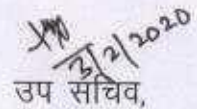 3/2/2020
उप सचिव,